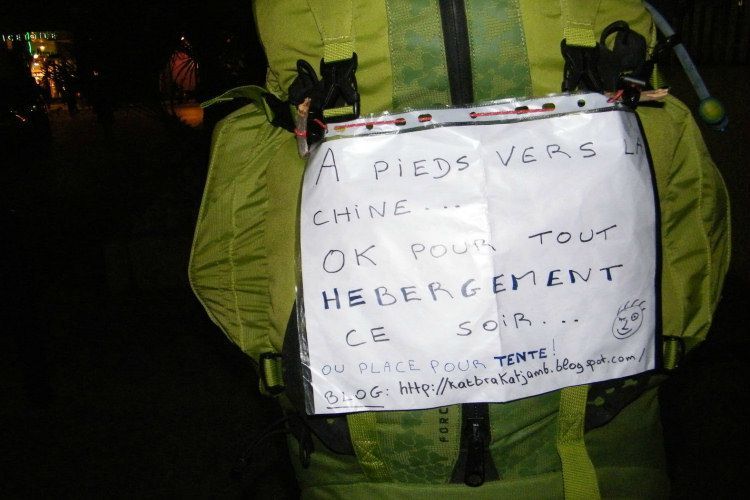 A PiEDS VERS LA
CHiNE...
OK POUR TOUT
HEBERGEMENT
CE SOiR...
OU PLACE POUR TENTE!
BLOG: http://katbrakatjamb.blogspot.com/
FORC